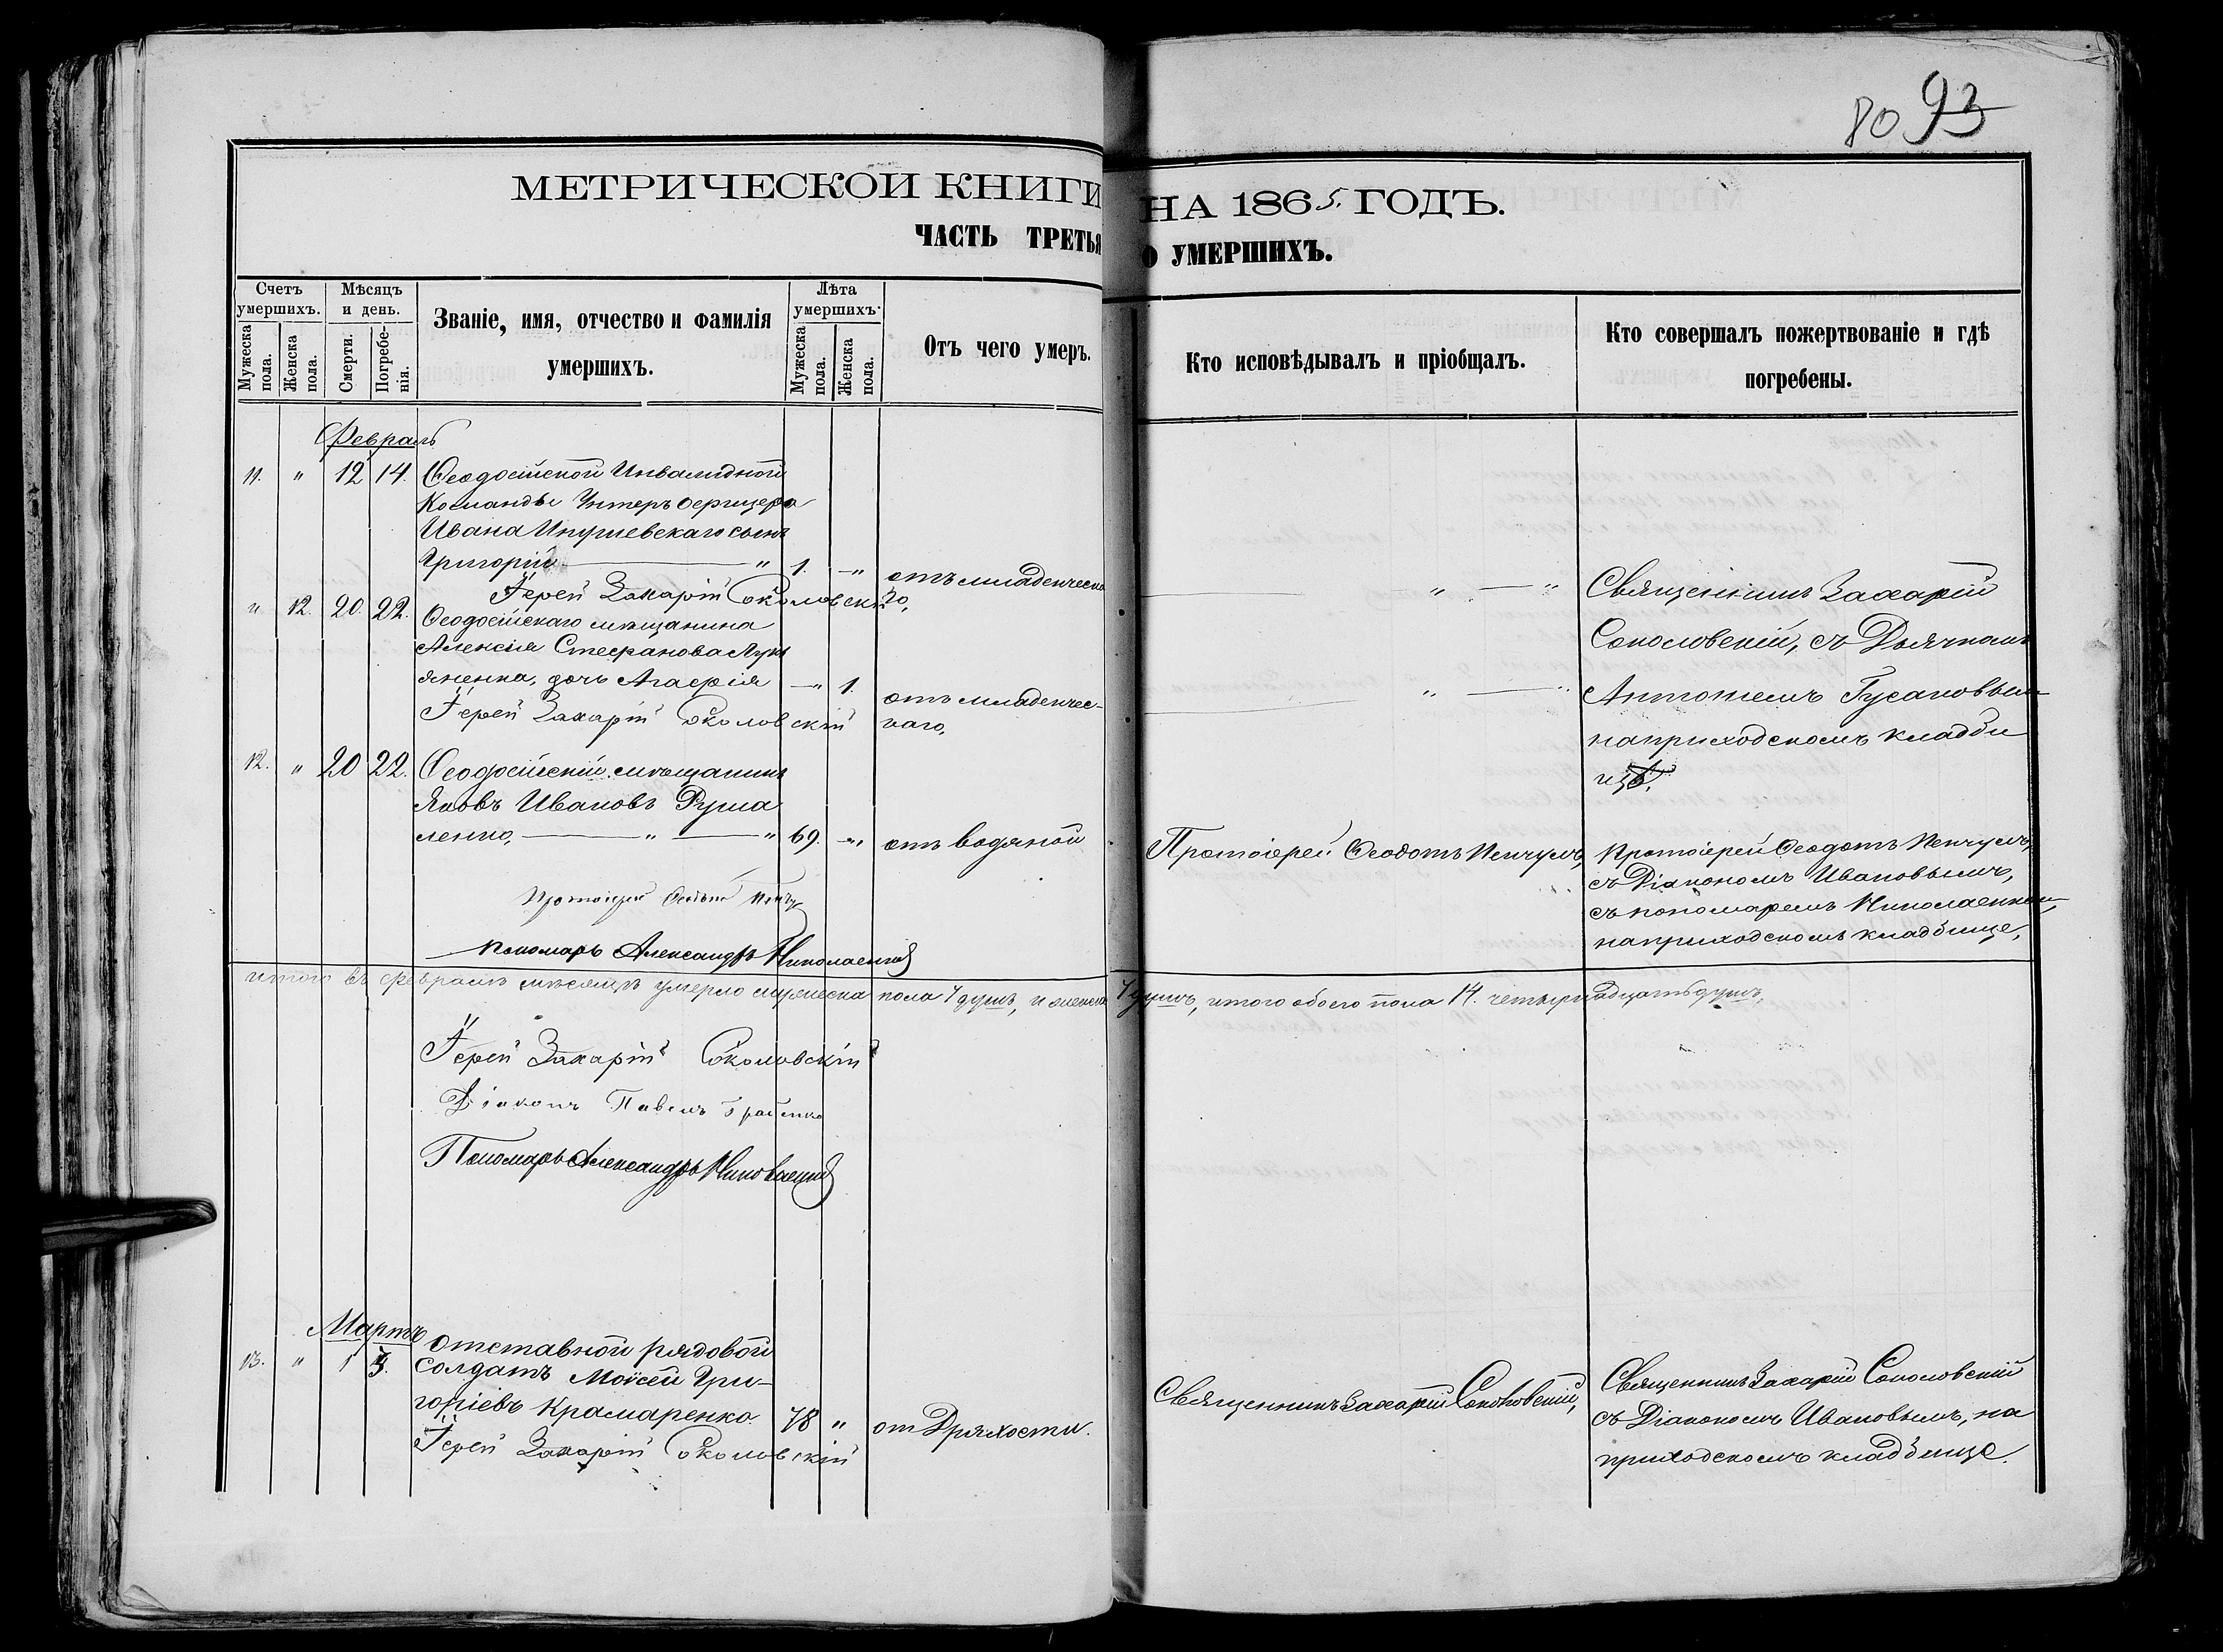 80 93
МЕТРИЧЕСКОЙ КНИГИ НА 1865. ГОДЪ.
ЧАСТЬ ТРЕТЬЯ О УМЕРШИХЪ.
Счетъ умершихъ.
Мужеска пола.
Женска пола.
Мѣсяцъ и день.
Смерти.
Погребенія.
Званіе, имя, отчество и фамилія
умершихъ.
Лѣта умершихъ.
Мужеска пола.
Женска пола.
Отъ чего умеръ.
Кто исповѣдывалъ и пріобщалъ.
Кто совершалъ пожертвованіе и гдѣ
погребены.
Февраль
11. " 12 14. Ѳеодосійской Инвалидной
Команды Унтеръ Офицера
Ивана сынъ
Григорій " 1. " отъ младенческа
го,
Іерей Захарій Соколовскій
" 12. 20. 22. Ѳеодосійскаго мѣщанина
Алексія Стефанова Лукь
яненка, дочь Агафія " 1. отъ младенчес-
каго,
Іерей Захарій Соколовскій
" "
" "
Священникъ Захарій
Соколовскій, съ Дьячкомъ
Антоніемъ Гусаковымъ
на приходскомъ кладби
щѣ.
12. " 20 22. Ѳеодосійскій мѣщанинъ
Яковъ Ивановъ Рума
ленко, " " 69. " отъ водяной
Протоіерей Ѳеодотъ Пенчулъ,
Протоіерей Ѳеодотъ Пенчулъ,
съ Діакономъ Ивановымъ,
съ пономаремъ Николаенкомъ,
на приходскомъ кладбище,
Протоіерей Ѳеодотъ
Пономарь Александръ Николаенко
итого въ февралѣ мѣсяцѣ умерло мужеска пола 7 душъ, и женска 7 душъ, итого обоего пола 14. четырнадцать душъ,
Іерей Захарій Соколовскій
Діаконъ Павелъ
Пономарь Александръ Николаенко
Мартъ
13. " 1 3. отставной рядовой
солдатъ Моисей Гри-
горіевъ Крамаренко. 78 " отъ Дряхлости.
Іерей Захарій Соколовскій
Священникъ Захарій Соколовскій,
Священникъ Захарій Соколовскій
съ Діакономъ Ивановымъ, на
приходскомъ кладбище.